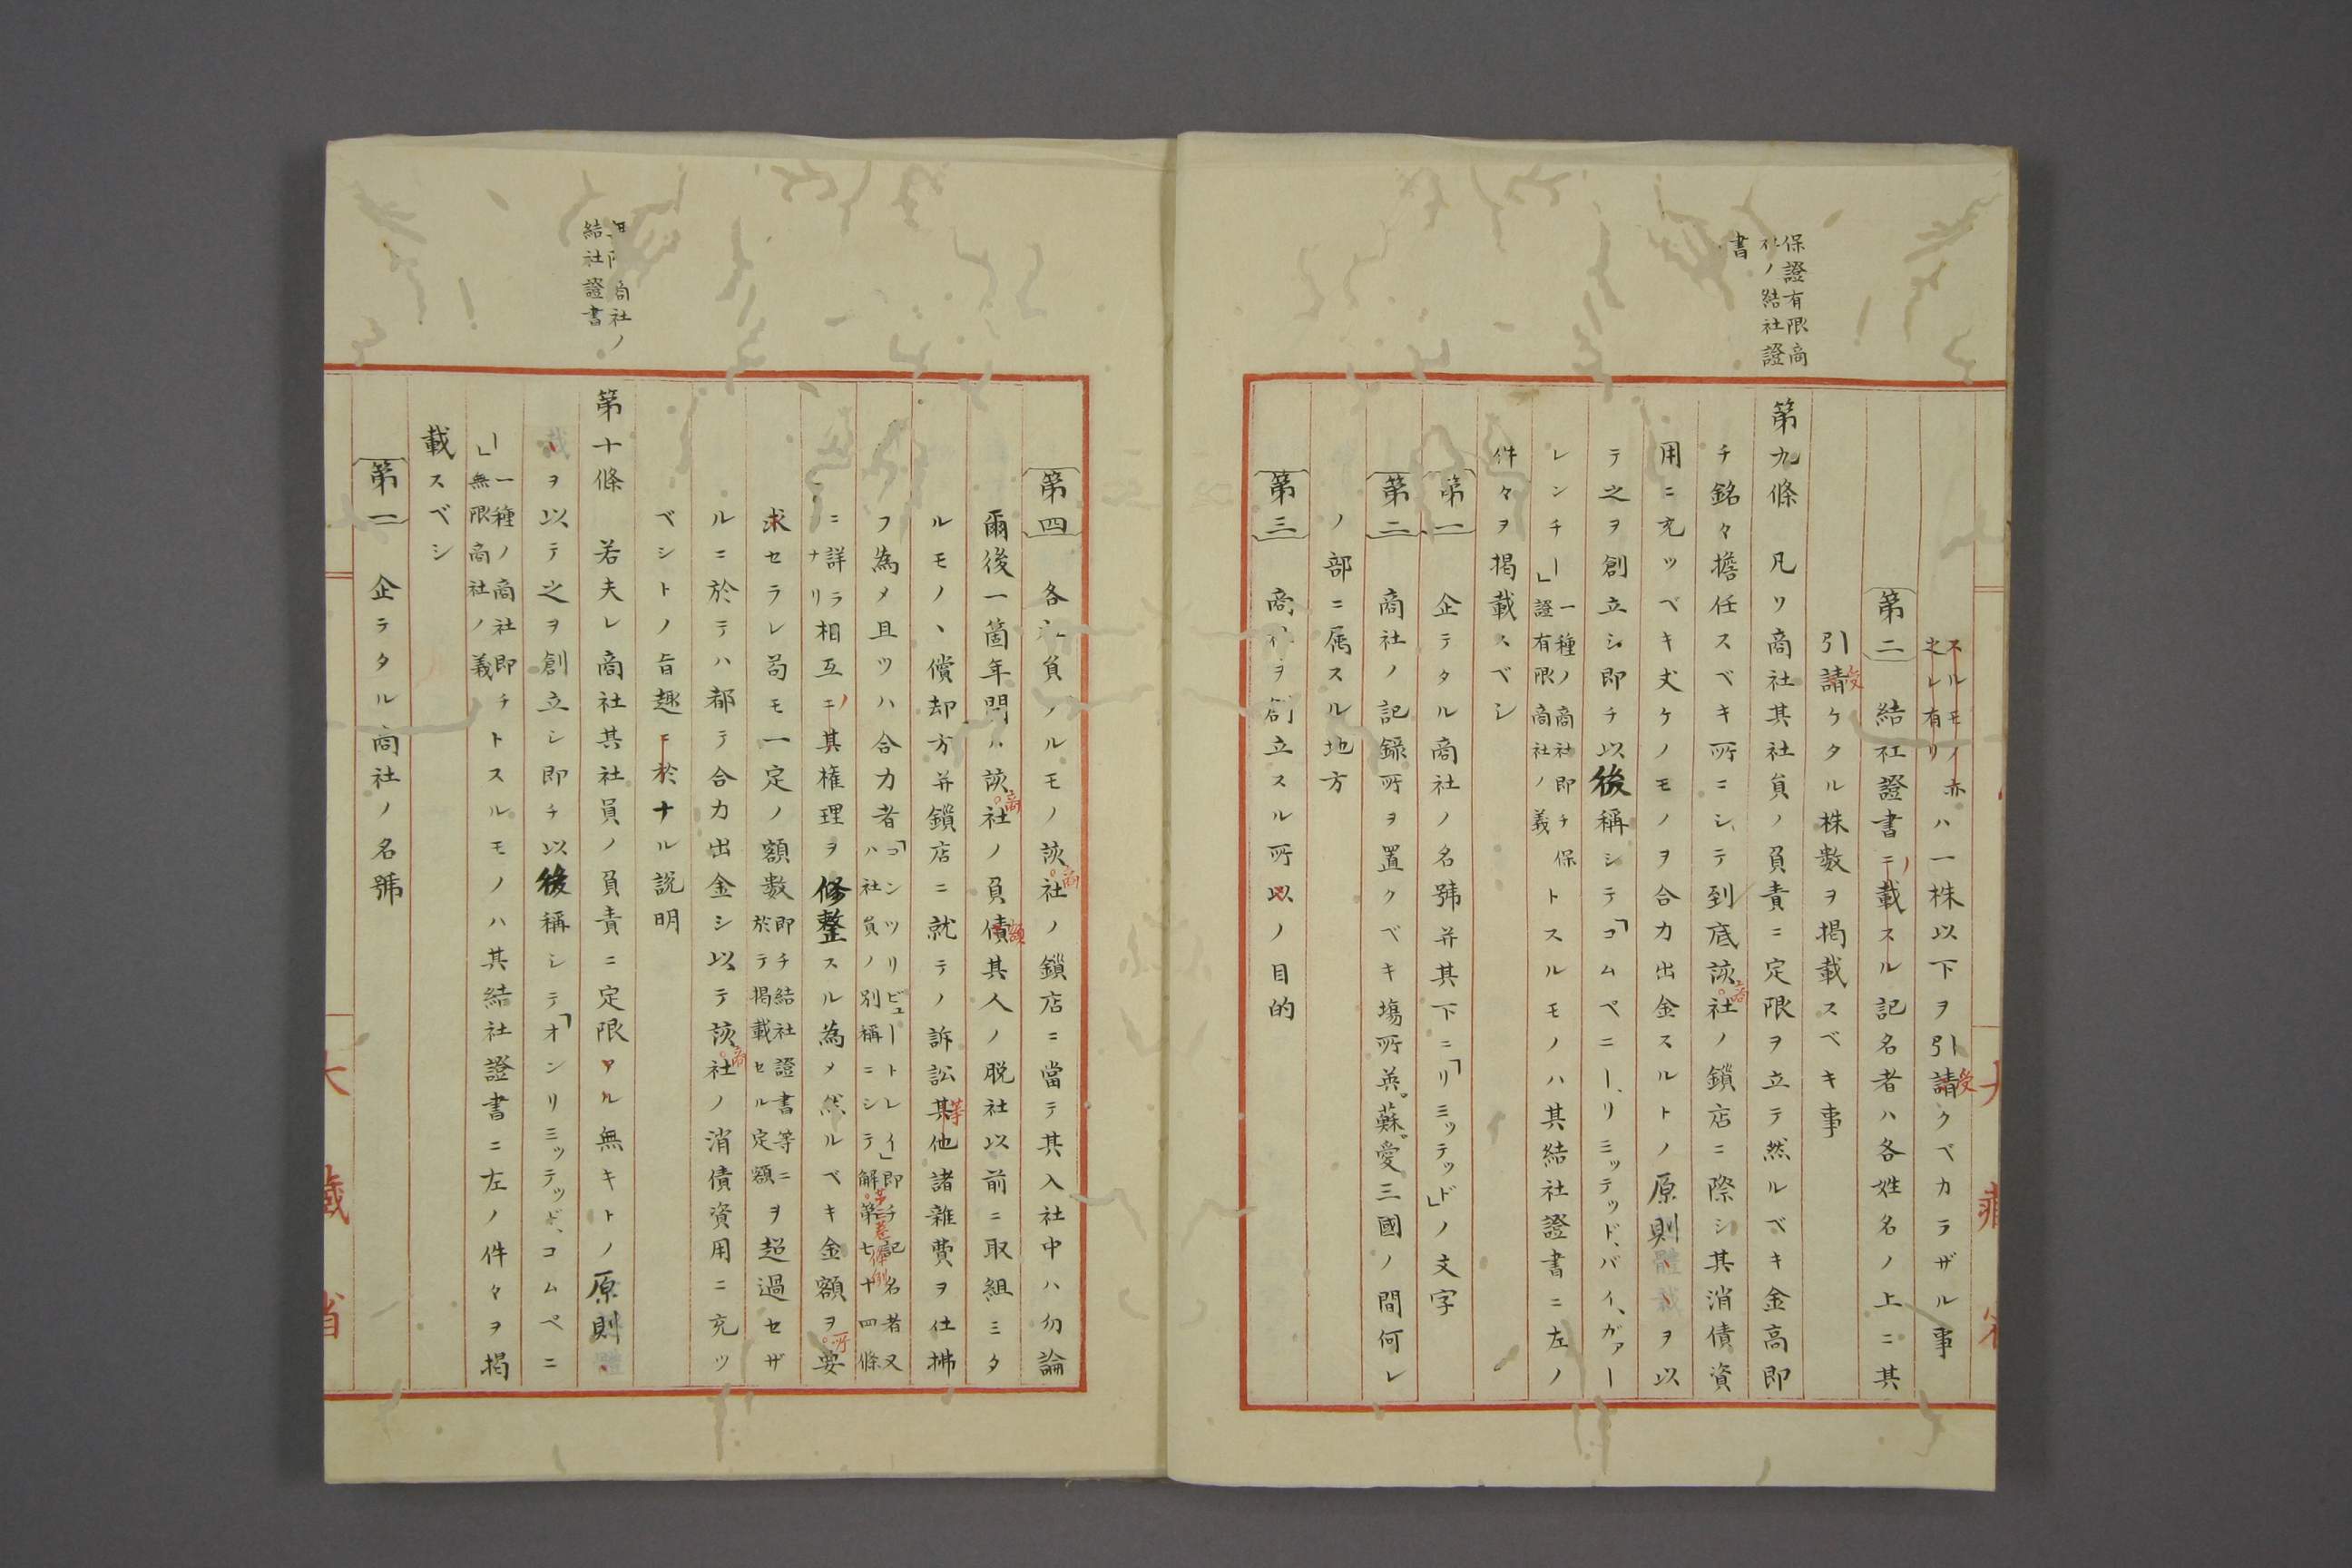 保證有限商
社ノ結社證
書
スルモノ亦
之レ有リ
ハ一株以下ヲ引請クベカラザル事
受
第二 結社證書ニ載スル記名者ハ各姓名ノ上ニ其
引請ケタル株数ヲ掲載スベキ事
受
第九條 凡ソ商社其社員ノ負責ニ定限ヲ立テ然ルベキ金高即
チ銘々擔任スベキ所ニシテ到底該社ノ鎖店ニ際シ其消債資
商
用ニ充ツベキ丈ケノモノヲ合力出金スルトノ原則ヲ以
テ之ヲ創立シ即チ以後稱シテ「コムペニー、リミッテッド、バイ、ガァー
レンチー」
一種ノ商社即チ保
證有限商社ノ義
トスルモノハ其結社證書ニ左ノ
件々ヲ掲載スベシ
第一 企テタル商社ノ名號并其下ニ「リミッテッド」ノ文字
第二 商社ノ記録所ヲ置クベキ塲所英蘇愛三國ノ間何レ
ノ部ニ属スル地方
第三 商社ヲ創立スル所以ノ目的
第四 各社員ノルモノ該社ノ鎖店ニ當テ其入社中ハ勿論
商
爾後一箇年間ハ該社ノ負債其人ノ脱社以前ニ取組ミタ
商
額
ルモノヽ償却方并鎖店ニ就テノ訴訟其他諸雑費ヲ仕拂
等
フ為メ且ツハ合力者
「コンツリビュートレイ」即チ記名者又
ハ社員ノ別稱ニシテ解第七十四條
ニ
詳ラ
ナリ
相互ニ其権理ヲ修整スル為メ然ルベキ金額ヲ要
所
求セラレ苟モ一定ノ額数
即チ結社證書等ニ
於テ掲載セル定額
ヲ超過セザ
ルニ於テハ都テ合力出金シ以テ該社ノ消債資用ニ充ツ
商
ベシトノ旨趣ニ於ナル説明
有限商社ノ
結社證書
第十條 若夫レ商社其社員ノ負責ニ定限アル無キトノ原則
ヲ以テ之ヲ創立シ即チ以後稱シテ「オンリミッテッド、コムペニ
ー」
一種ノ商社即チ
無限商社ノ義
トスルモノハ其結社證書ニ左ノ件々ヲ掲
載スベシ
第一 企テタル商社ノ名號
大藏省